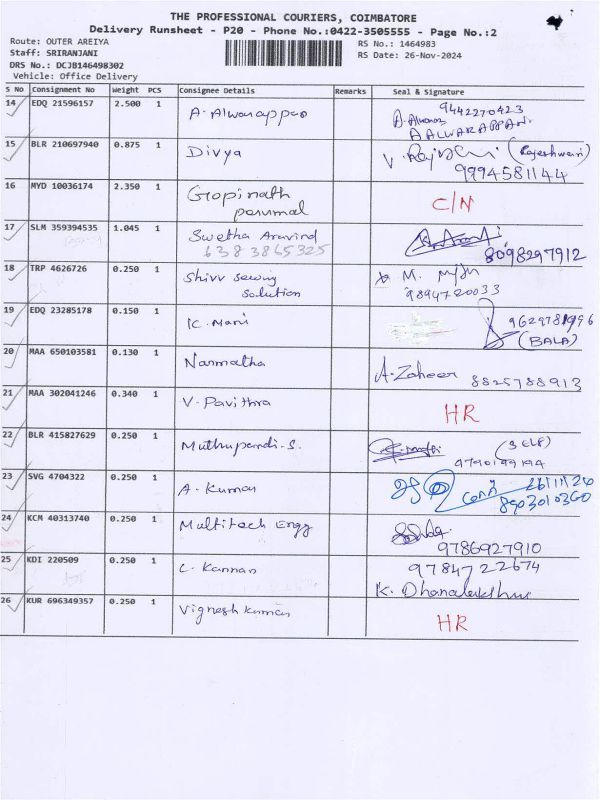 THE PROFESSIONAL COURIERS, COIMBATORE
Delivery Runsheet - P20 - Phone No.:0422-3505555 - Page No.:2
Route: OUTER AREIYA RS No.: 1464983
Staff: SRIRANJANI RS Date: 26-Nov-2024
DRS No.: DCJB146498302
Vehicle: Office Delivery
S No Consignment No Weight PCS Consignee Details Remarks Seal & Signature
14 EDQ 21596157 2.500 1 A. Alwarappan 9442270423
A ALWARAPPAN
15 BLR 210697940 0.875 1 Divya (Rajeshwari)
9994581144
16 MYD 10036174 2.350 1 Gopinath
perumal C/N
17 SLM 359394535 1.045 1 Swetha Aravind
6383865325 8098297912
18 TRP 4626726 0.250 1 Shivv sewing
solution M.
9894720033
19 EDQ 23285178 0.150 1 K. Mani 9629781996
(BALA)
20 MAA 650103581 0.130 1 Narmatha A. Zaheer 8825788913
21 MAA 302041246 0.340 1 V. Pavithra HR
22 BLR 415827629 0.250 1 Muthupandi.S. (SELF)
9790199194
23 SVG 4704322 0.250 1 A. Kumar 26/11/24
8903010360
24 KCM 40313740 0.250 1 Multitech Engg
9786927910
25 KDI 220509 0.250 1 C. Kannan 9784722674
K. Dhanalakshmi
26 KUR 696349357 0.250 1 Vignesh kumar HR